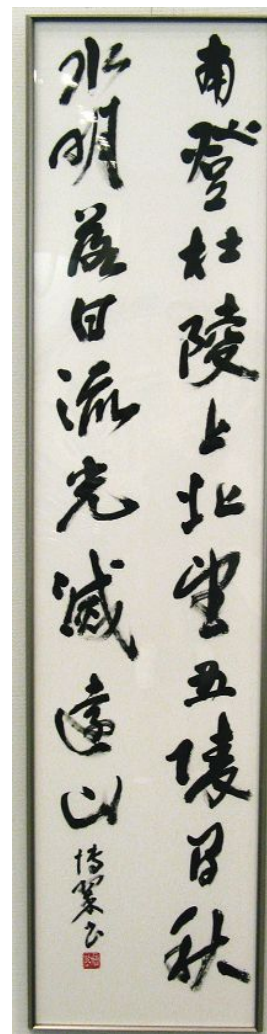 南登杜陵上北望五陵間秋
水明落日流光滅遠山
博翠書